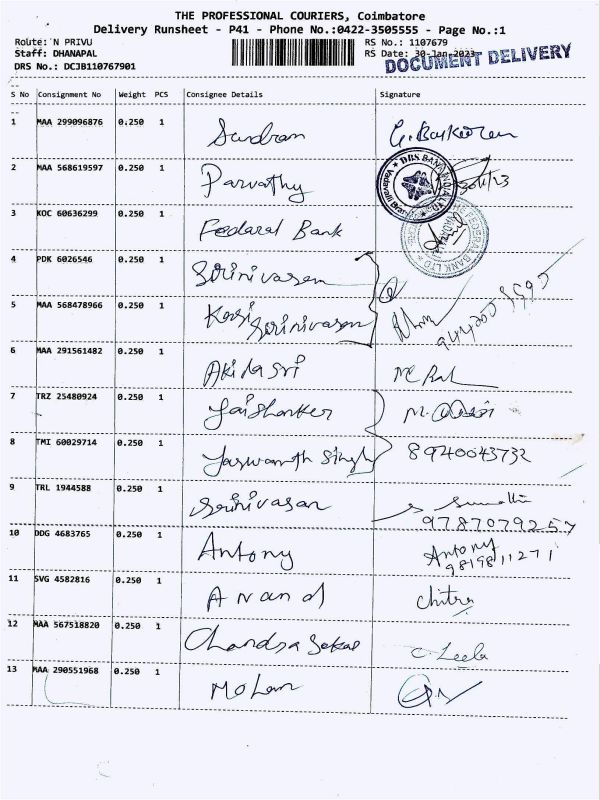 THE PROFESSIONAL COURIERS, Coimbatore
Delivery Runsheet - P41 - Phone No.:0422-3505555 - Page No.:1
Route: N PRIVU RS No.: 1107679
Staff: DHANAPAL RS Date: 30-Jan-2023
DRS No.: DCJB110767901 DOCUMENT DELIVERY
S No Consignment No Weight PCS Consignee Details Signature
1 MAA 299096876 0.250 1 Sundran
2 MAA 568619597 0.250 1 Parvathy
DBS BANK INDIA LTD
3 KOC 60636299 0.250 1 Fedaral Bank
FEDERAL BANK LTD
4 PDK 6026546 0.250 1 Srinivasan
5 MAA 568478966 0.250 1 Kasi Srinivasan
6 MAA 291561482 0.250 1 Akidasri
7 TRZ 25480924 0.250 1 Jaishanker
8 TMI 60029714 0.250 1 Jaswanth Singh 8940043732
9 TRL 1944588 0.250 1 Srinivasan
9787079257
10 DDG 4683765 0.250 1 Antony Antony
9819811271
11 SVG 4582816 0.250 1 Anand Chitra
12 MAA 567518820 0.250 1 Chandra Sekar C. Leela
13 MAA 290551968 0.250 1 Mohan